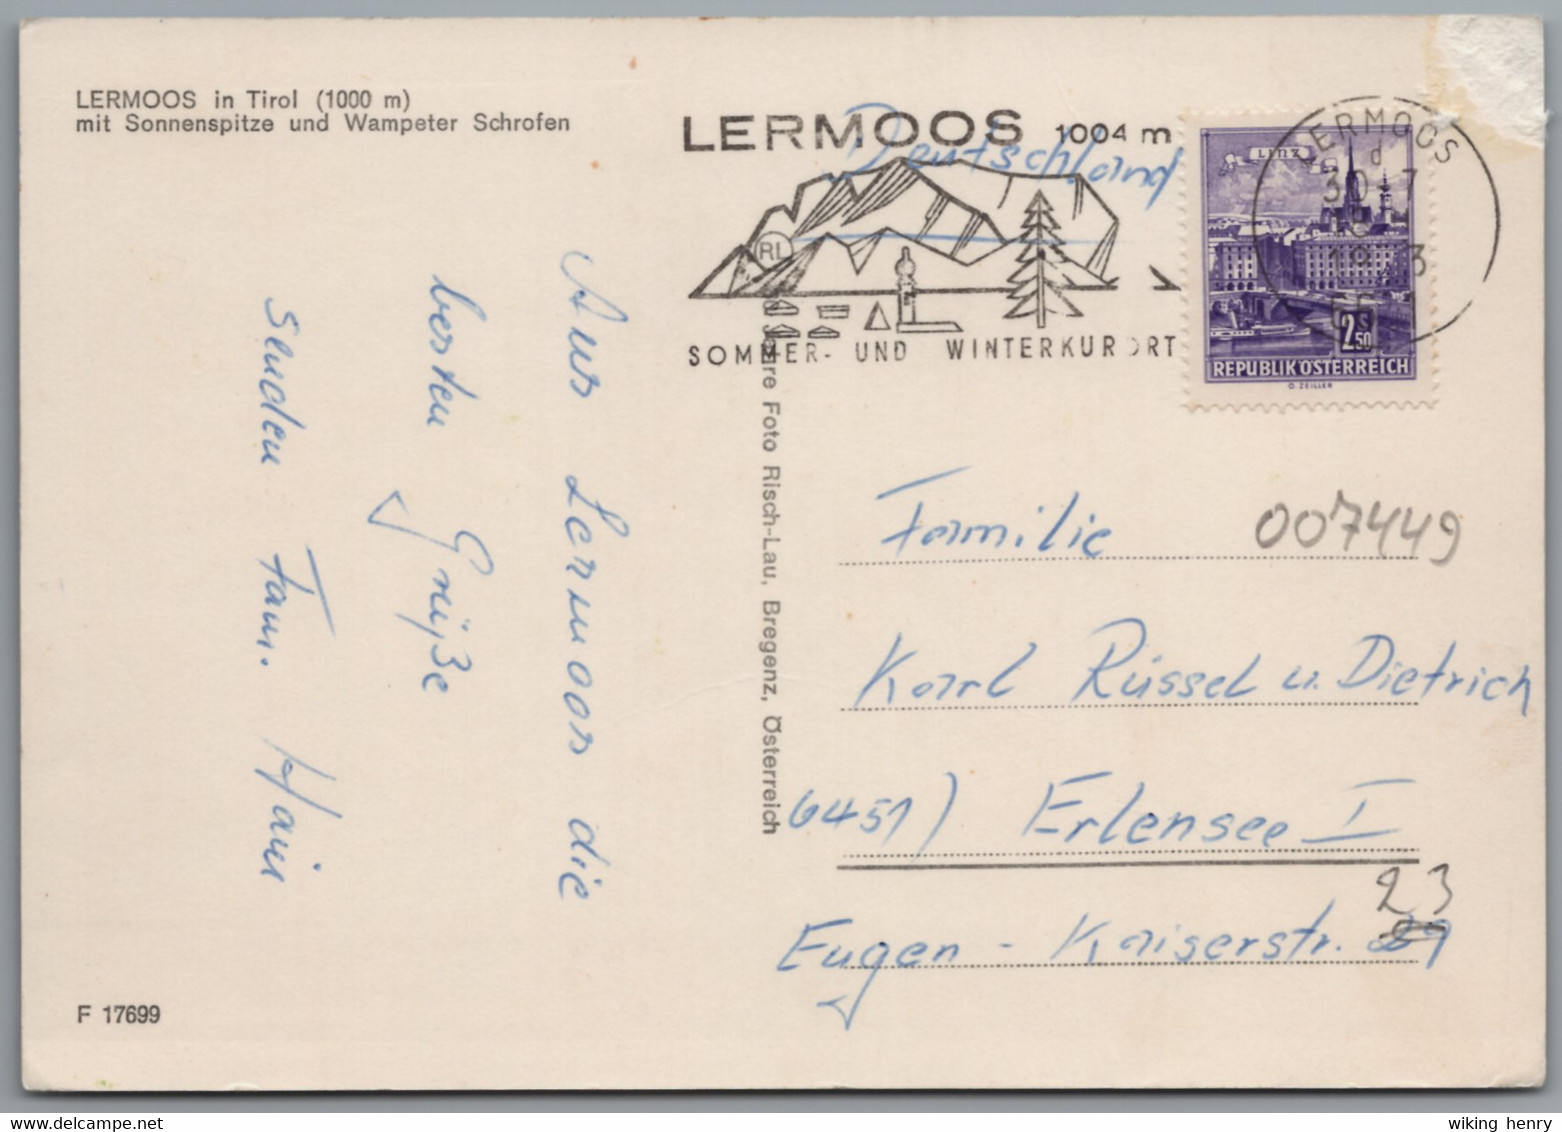 LERMOOS in Tirol (1000 m)
mit Sonnenspitze und Wampeter Schrofen
LERMOOS 1004 m
Deutschland
RL
SOMMER- UND WINTERKURORT
LERMOOS
d
30-7
18
6631
LINZ
2.50 S
REPUBLIK ÖSTERREICH
O. ZEILLER
Aus Lermoos die
besten Grüße
senden Fam. Hain
Foto Risch-Lau, Bregenz, Österreich
Familie
007449
Karl Rüssel u. Dietrich
6451) Erlensee I
23
Eugen-Kaiserstr. 29
F 17699
wiking henry